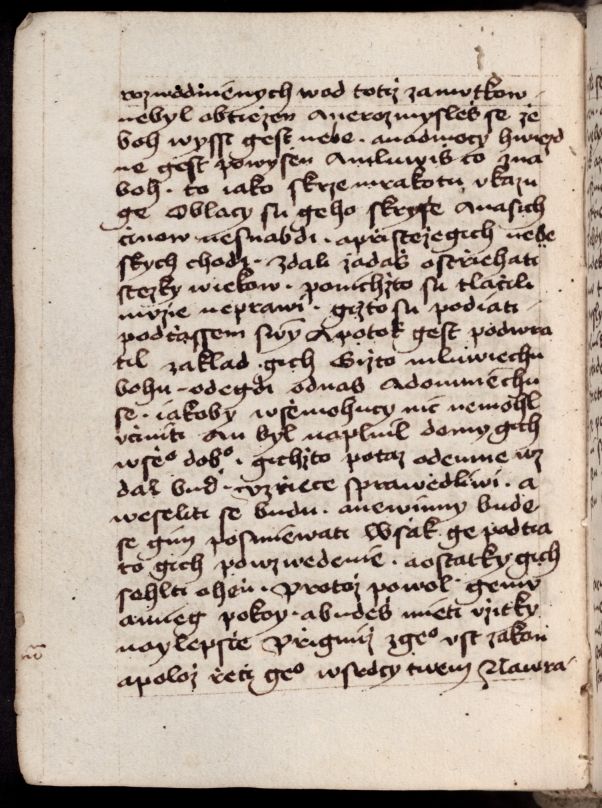 rozwodniených wod totiž zamutkow
nebyl obtiežen A nerozmysleš se že
boh wyšší gest nebe · a nad mocy hwiezd
ne gest powyšen A mluwiš co zna
boh · to iako skrze mrakotu ukazu
ge Oblacy su geho skryše A našich
činow nesnabdí · a při stežegich nebe
ských chodí · zdali žadaš ostřiehati
stezky wiekow · po nichžto su tlačili
muzie neprawí · gižto su podiati
pod časem swym A potok gest podwra
til zaklad gich Gižto mluwiechu
bohu · odegdi od nas A domniechu
se · iakoby wšemohucy nic nemohl
učiniti An byl naplnil domy gich
wšeo dobo · gichžto potaz odemne wz
dal bud · uzřiece sprawedliwi · a
weseliti se budu · a newinny bude
se gim posmiewati Wšak ge podtia
to gich powzwedenie · a ostatky gich
sehltí oheň · Protož powol gemu
a měg pokoy · a budeš mieti užitky
naylepšie Přigmiž z geo ust zakon
a polož řeči geo w srdcy twem Nawra-